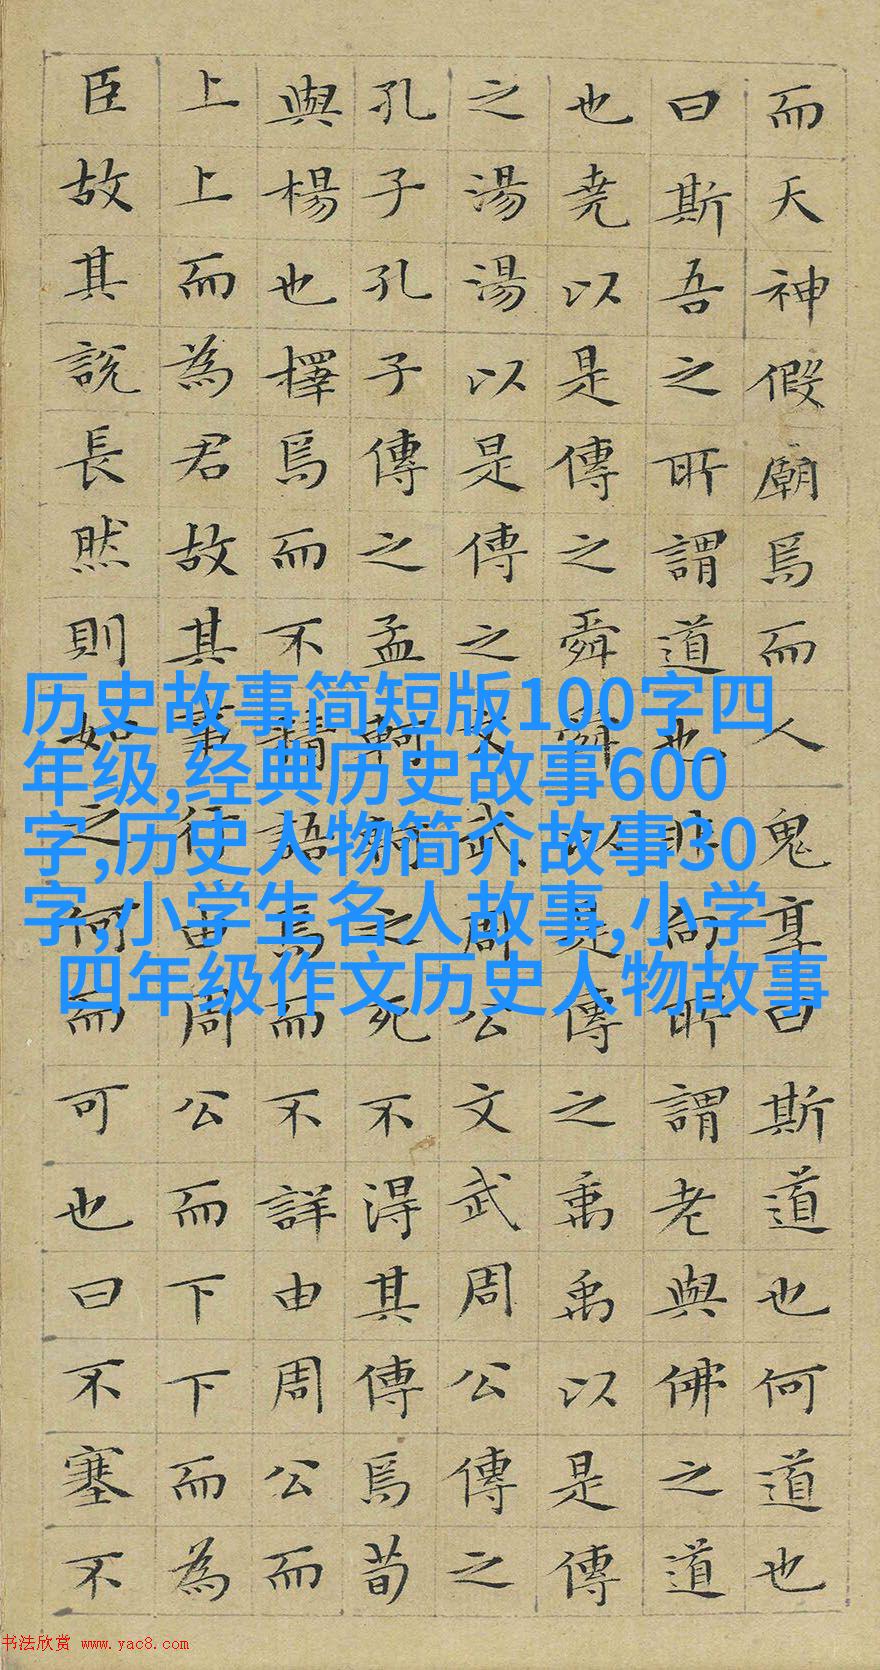 而天神假廟焉而人鬼享曰斯道也何道也
曰斯吾之所謂道也非向所謂老與佛之道
也堯以是傳之舜舜以是傳之禹禹以是傳
之湯湯以是傳之文武周公文武周公傳之
孔子孔子傳之孟軻軻之死不得其傳焉荀
與楊也擇焉而不精語焉而不詳由周公而
上上而為君故其事行由周公而下下而為
臣故其說長然則如之何而可也曰不塞不
历史故事简短版100字四
年级,经典历史故事600
字,历史人物简介故事30
字,小学生名人故事,小学
四年级作文历史人物故事
书法欣赏 www.yac8.com